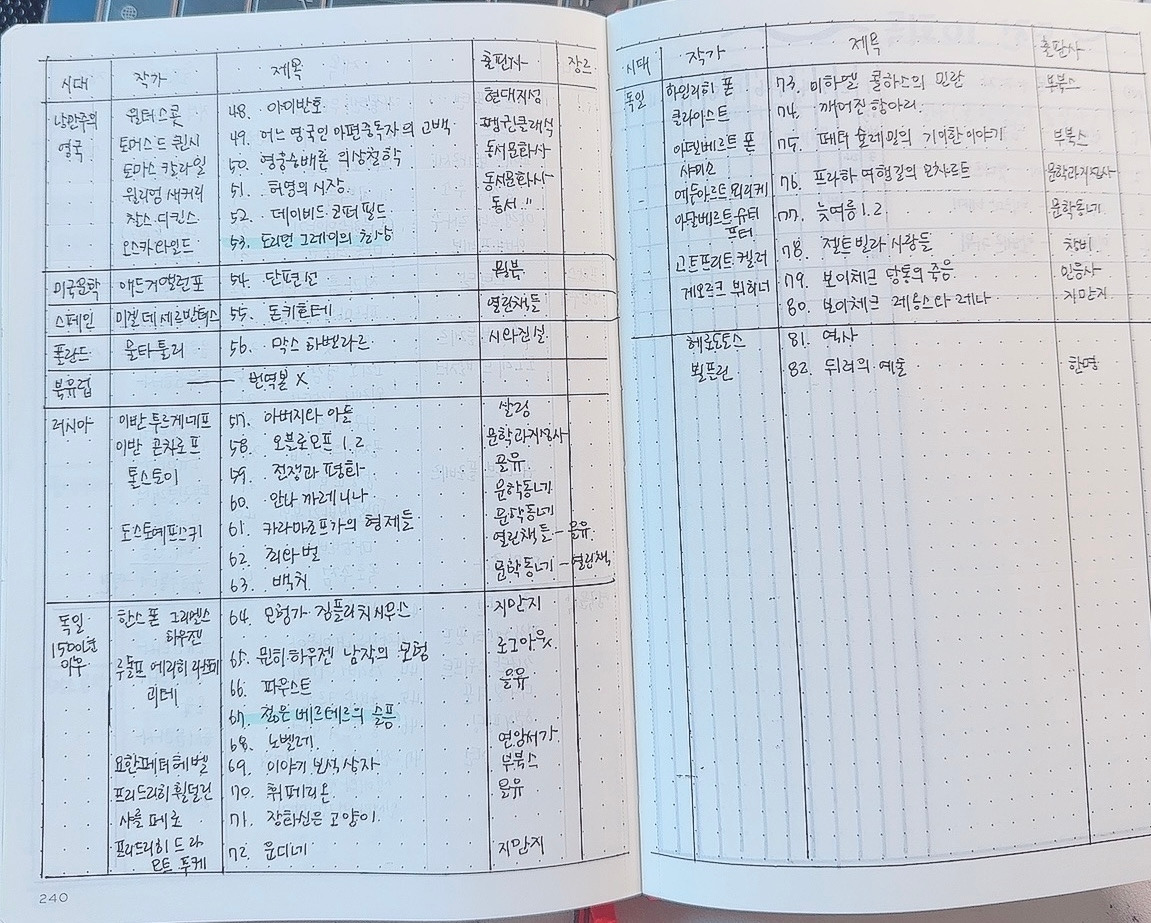 시대 작가 제목 출판사 장르
낭만주의 월터 스콧 48. 아이반호 현대지성
영국 토머스 드 퀸시 49. 어느 영국인 아편중독자의 고백 펭귄클래식
토마스 칼라일 50. 영웅숭배론 의상철학 동서문화사
윌리엄 새커리 51. 허영의 시장 동서문화사
찰스 디킨스 52. 데이비드 코퍼필드 동서 "
오스카 와일드 53. 도리언 그레이의 초상
미국문학 애드거 앨런 포 54. 단편선
스페인 미겔 데 세르반테스 55. 돈키호테 열린책들
폴란드 물타툴리 56. 막스 하벨라르 시와진실
북유럽 번역본 X
러시아 이반 투르게네프 57. 아버지와 아들
이반 곤차로프 58. 오블로모프 1.2 문학과지성사
톨스토이 59. 전쟁과 평화 을유
60. 안나 까레니나 문학동네
도스토예프스키 61. 카라마조프가의 형제들 문학동네
62. 죄와 벌 열린책들 - 을유
63. 백치 문학동네 - 열린책
독일 한스 폰 그리멜스 64. 모험가 짐플리치시무스 지만지
1500이후 하우젠
루돌프 에리히 라스페 65. 뮌히하우젠 남작의 모험 로그아웃
괴테 66. 파우스트 을유
67. 젊은 베르테르의 슬픔
68. 노벨레
요한 페터 헤벨 69. 이야기 보석 상자 부북스
프리드리히 횔덜린 70. 휘페리온 을유
샤를 페로 71. 장화신은 고양이
프리드리히 드 라 72. 운디네 지만지
모트 푸케
240
시대 작가 제목 출판사
독일 하인리히 폰 73. 미하엘 콜하스의 민란 부북스
클라이스트 74. 깨어진 항아리
아델베르트 폰 75. 페터 슐레밀의 기이한 이야기 부북스
샤미소
에두아르트 뫼리케 76. 프라하 여행길의 모차르트 문학과지성사
아달베르트 슈티 77. 늦여름 1.2 문학동네
프터
고트프리트 켈러 78. 젤트빌라 사람들 창비
게오르크 뷔히너 79. 보이체크 당통의 죽음 민음사
80. 보이체크 레옹스와 레나 지만지
헤로도토스 81. 역사
뵐플린 82. 뒤러의 예술 한명